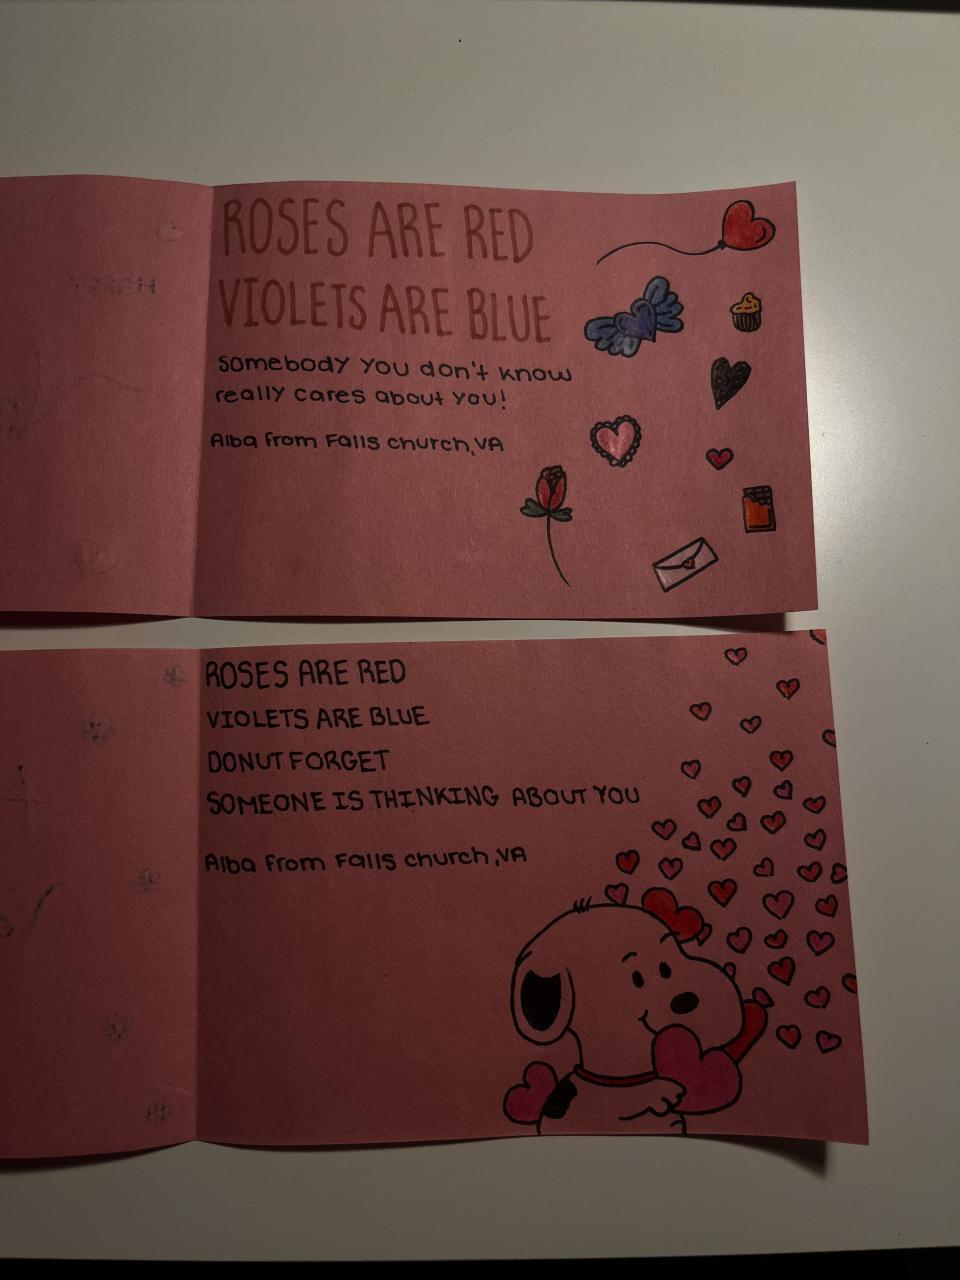 ROSES ARE RED
VIOLETS ARE BLUE
Somebody you don't know
really cares about you!
Alba from Falls church,VA
ROSES ARE RED
VIOLETS ARE BLUE
DONUT FORGET
SOMEONE IS THINKING ABOUT YOU
Alba from Falls church,VA